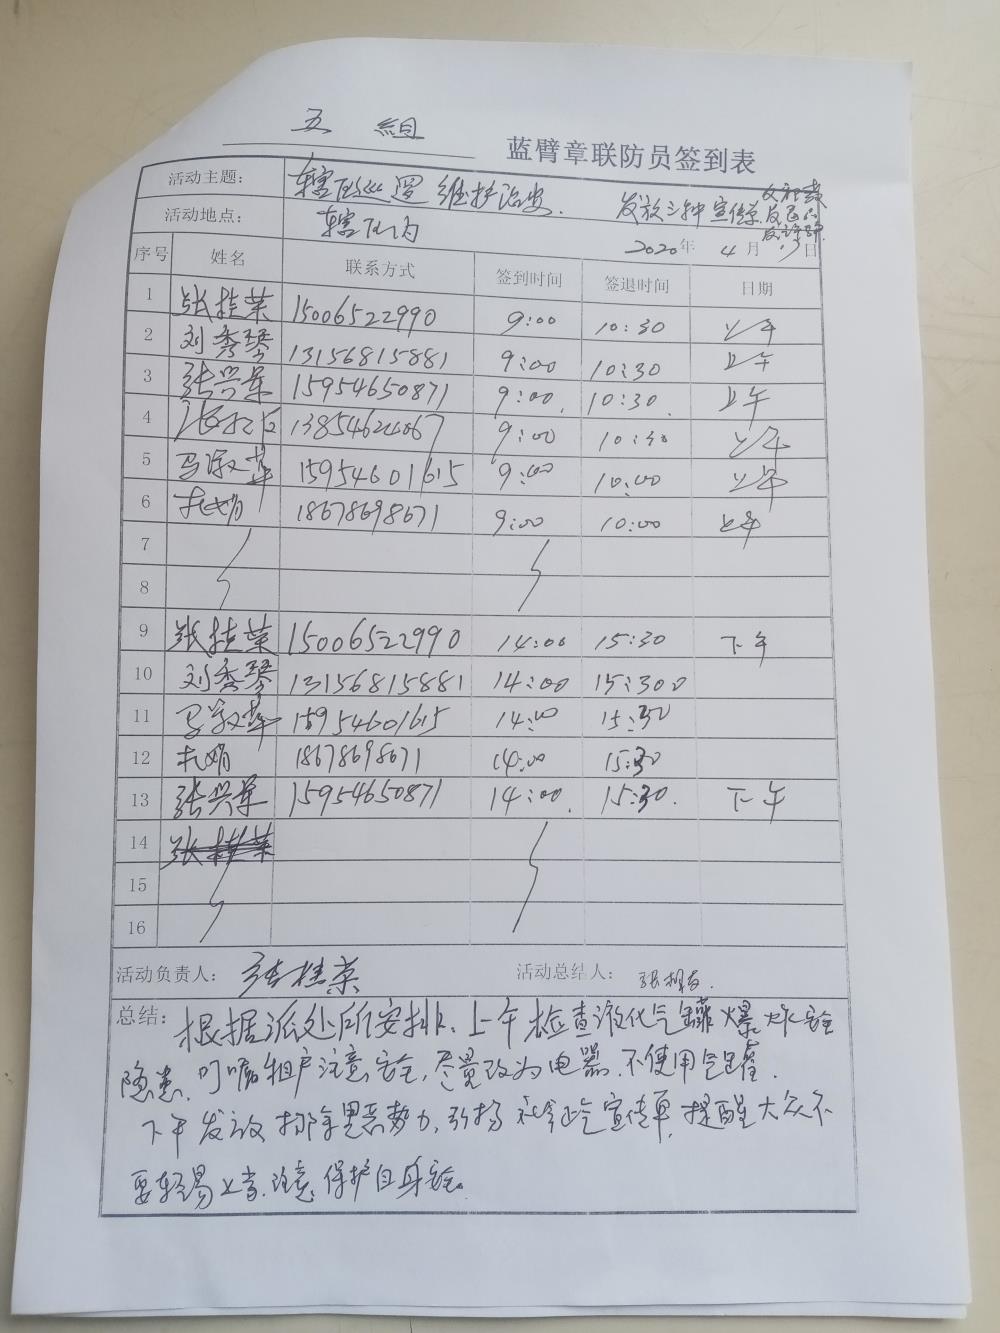 五 组
蓝臂章联防员签到表
活动主题： 辖区巡逻 维护治安. 发放三种宣传单
活动地点： 辖区内 2020年 4月 日
序号 姓名 联系方式 签到时间 签退时间 日期
1 张桂荣 15006522990 9:00 10:30 上午
2 刘秀琴 13156815881 9:00 10:30 上午
3 张兴军 15954650871 9:00. 10:30. 上午
4 9:00 10:30 上午
5 马淑萍 15954601615 9:00 10:00 上午
6 18678698671 9:00 10:00 上午
7
8
9 张桂荣 15006522990 14:00 15:30 下午
10 刘秀琴 13156815881 14:00 15:300
11 马淑萍 15954601615 14:00 15:30
12 18678698671 14:00 15:30
13 张兴军 15954650871 14:00. 15:30. 下午
14 张桂荣
15
16
活动负责人： 张桂荣 活动总结人：
总结： 根据派处所安排、上午检查液化气罐爆炸安全
隐患. 叮嘱租户注意安全, 尽量改为电器. 不使用气罐.
下午发放排除黑恶势力, 弘扬社会正气宣传单, 提醒大众不
要轻易上当. 注意保护自身安全。